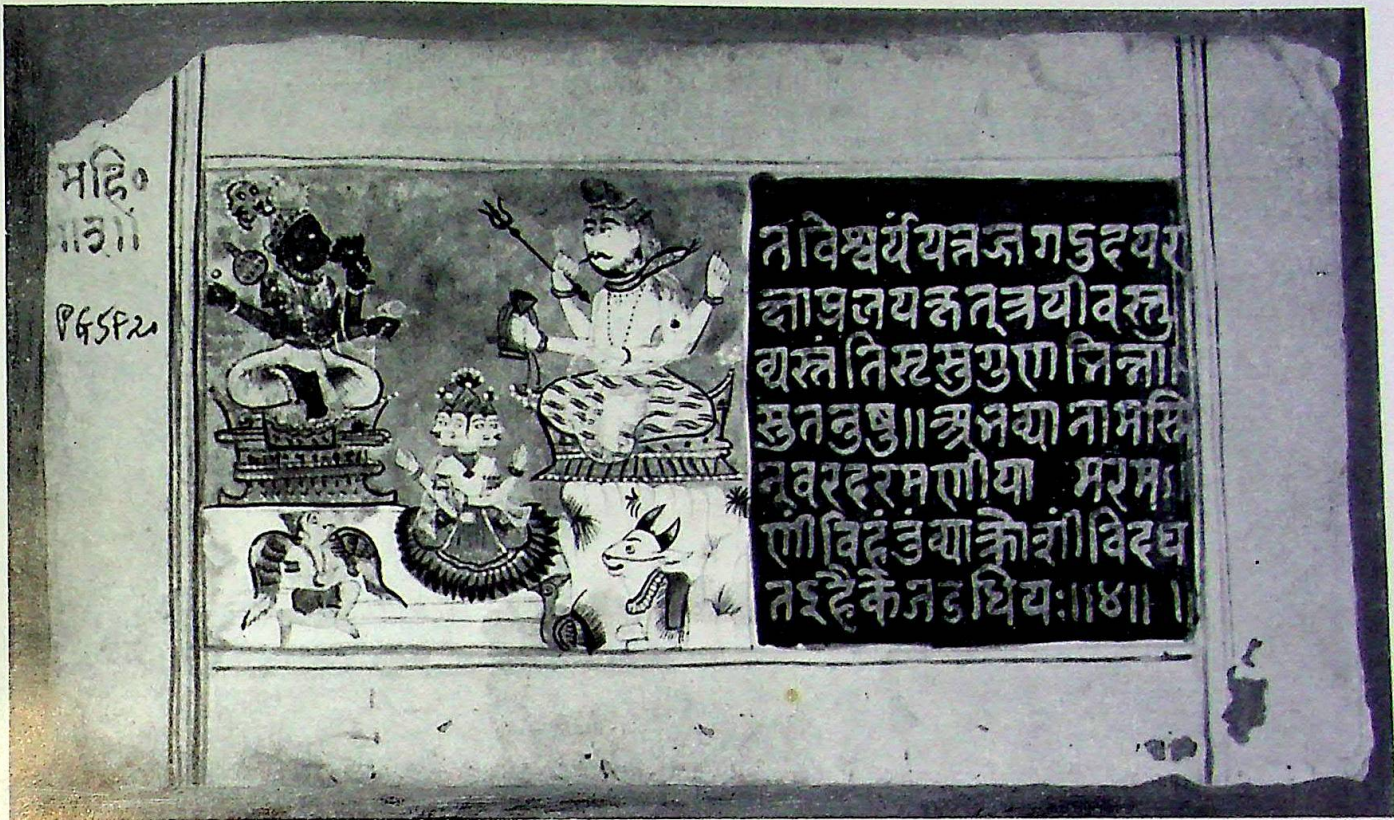 महि॰
॥३॥
PG5F20
तवैश्वर्यंयत्तज्जगदुदयर
क्षाप्रलयकृत्त्रयीवस्तु
व्यस्तं तिसृसुगुणभिन्ना
सुतनुषु॥अभव्यानामस्मि
न्वरदरमणीया मरम
णीं विहंतुंव्याक्रोशीं विदध
तइहैकेजडधियः॥४॥